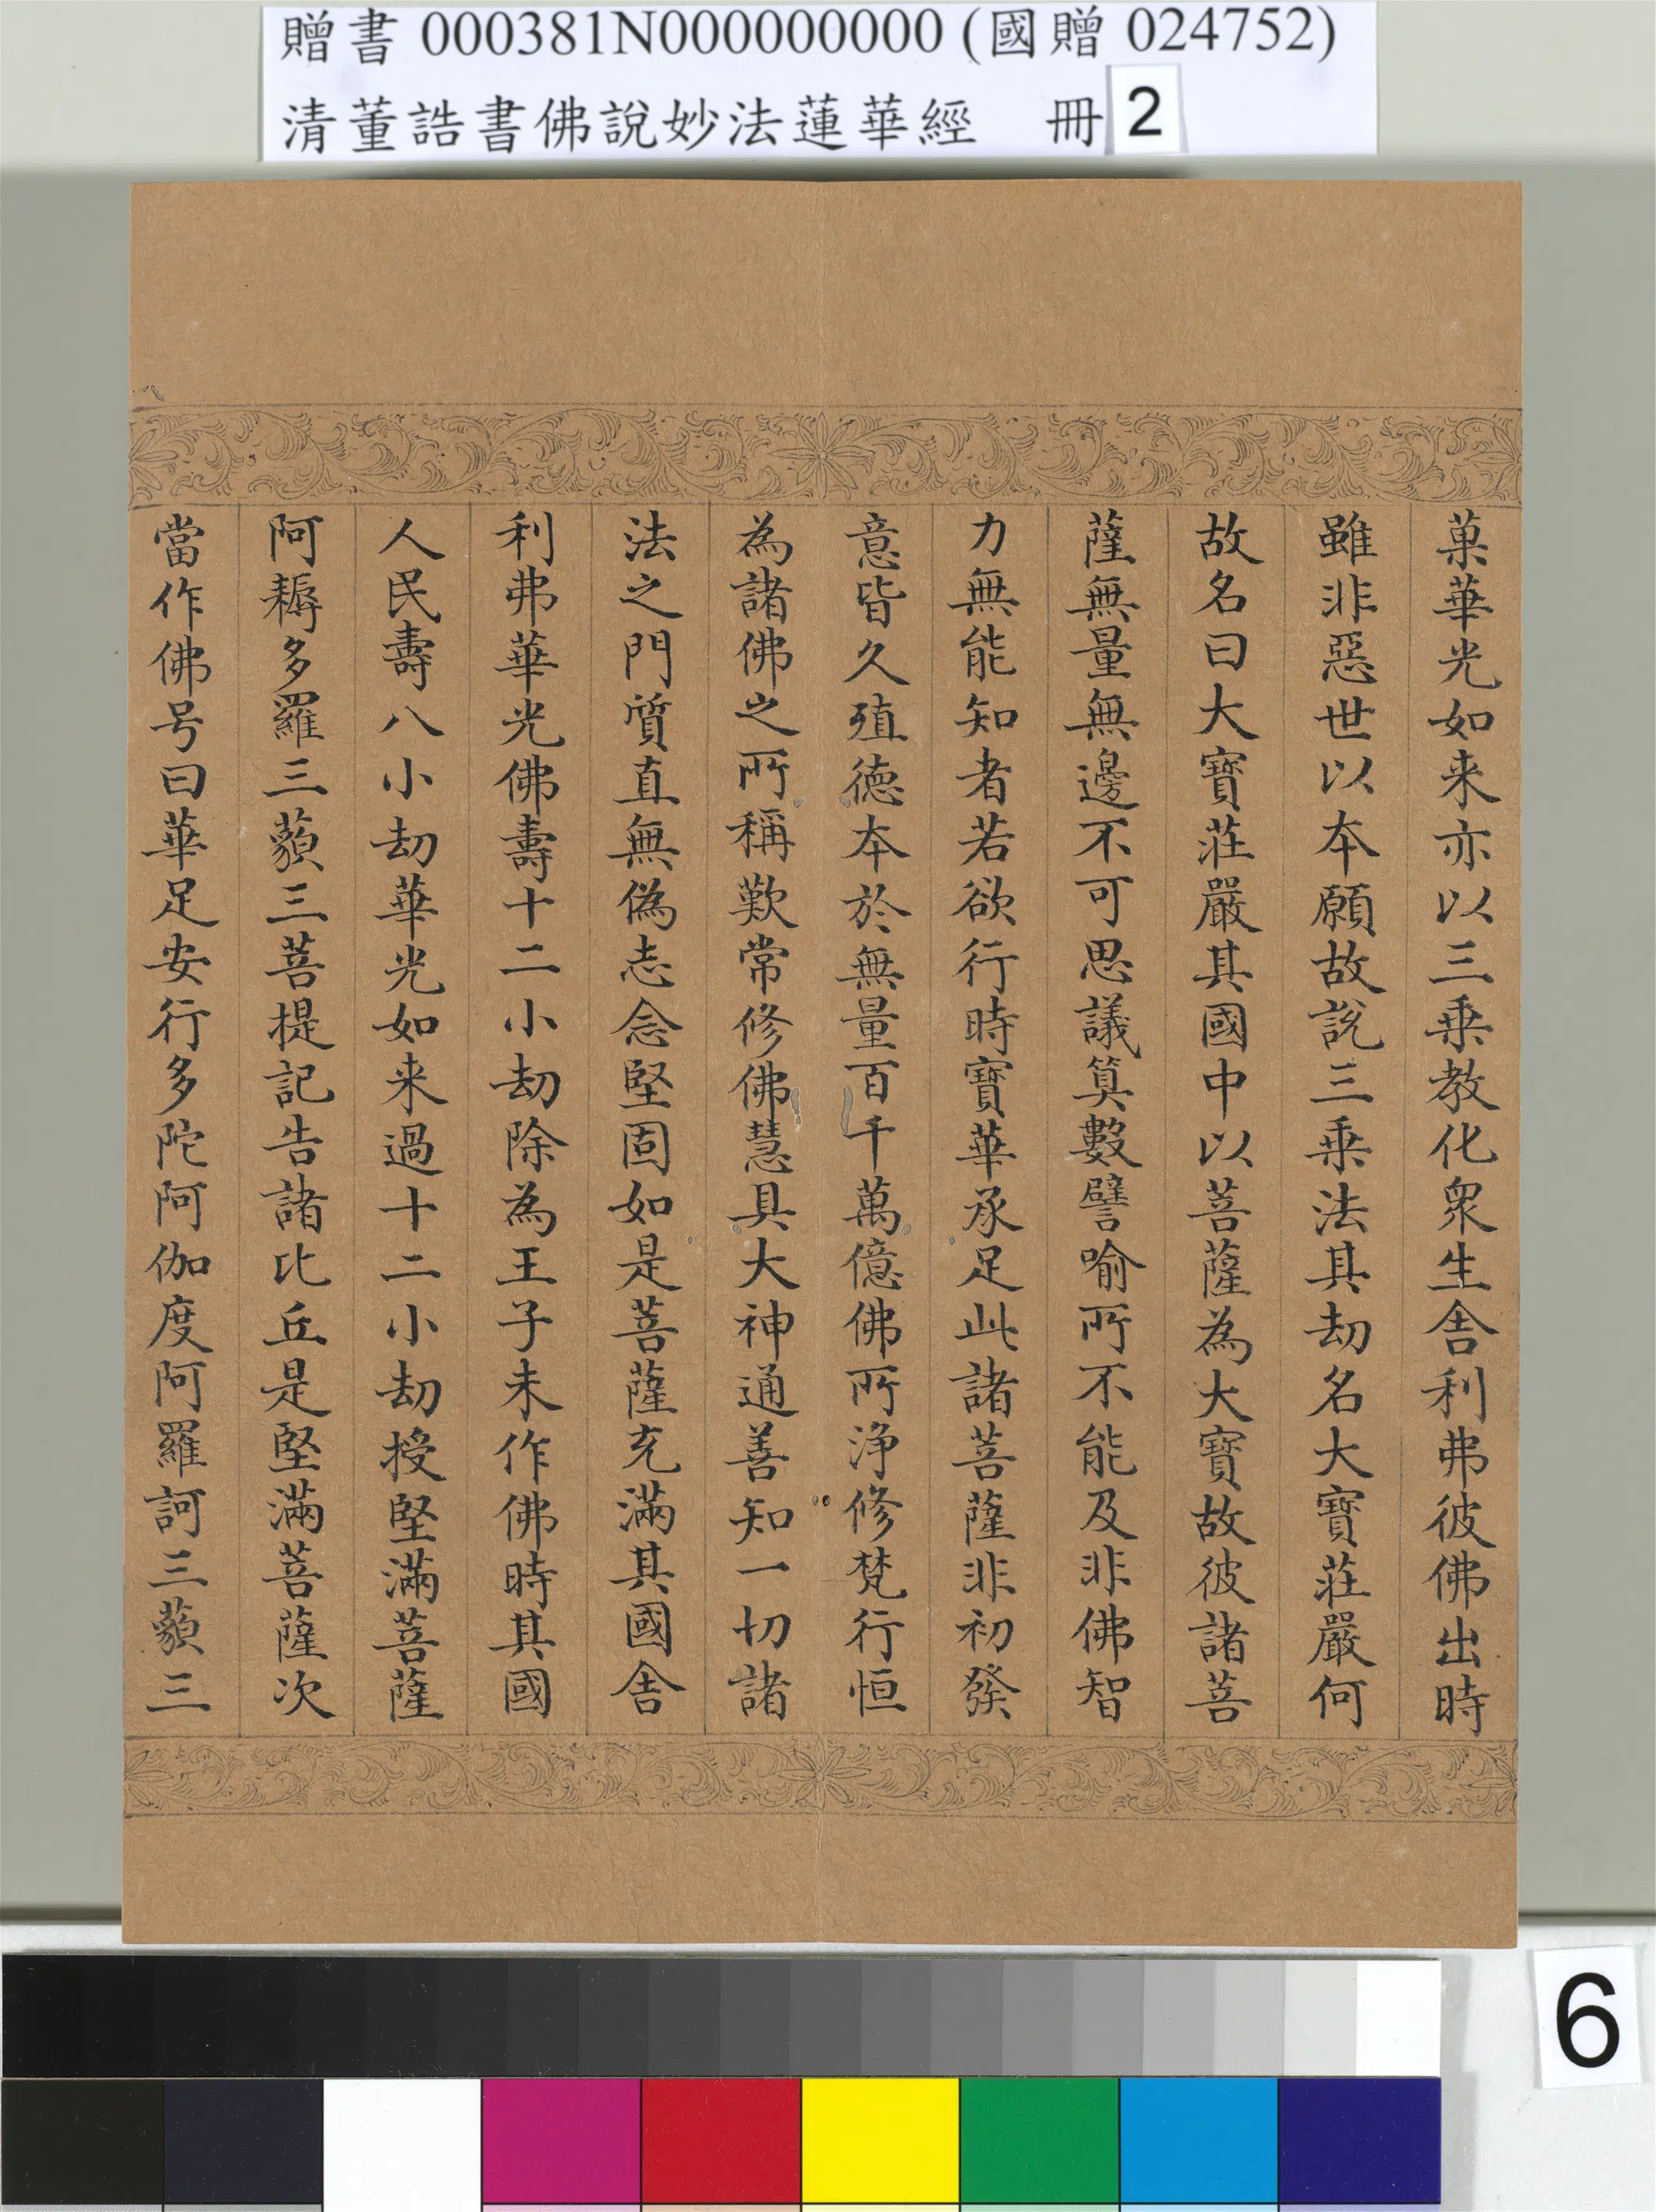 贈書 000381N000000000 (國贈 024752)
清董誥書佛說妙法蓮華經 冊 2
菓華光如来亦以三乗教化衆生舎利弗彼佛出時
雖非惡世以本願故說三乗法其劫名大寶莊嚴何
故名曰大寶莊嚴其國中以菩薩為大寶故彼諸菩
薩無量無邊不可思議算數譬喻所不能及非佛智
力無能知者若欲行時寶華承足此諸菩薩非初發
意皆久殖德本於無量百千萬億佛所淨修梵行恒
為諸佛之所稱歎常修佛慧具大神通善知一切諸
法之門質直無偽志念堅固如是菩薩充滿其國舎
利弗華光佛壽十二小劫除為王子未作佛時其國
人民壽八小劫華光如来過十二小劫授堅滿菩薩
阿耨多羅三藐三菩提記告諸比丘是堅滿菩薩次
當作佛号曰華足安行多陀阿伽度阿羅訶三藐三
6